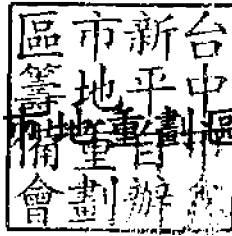 台中
新平自辦
市地重劃
區籌備會
市地重劃區